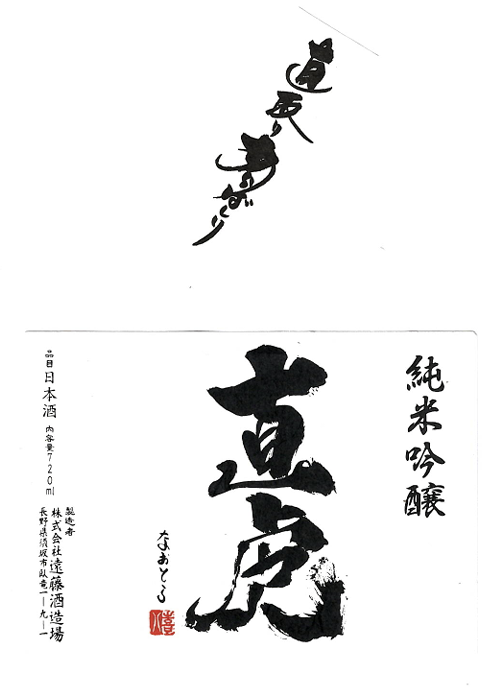 直取り
純米吟醸
直虎
なおとら
製造者
株式会社遠藤酒造場
長野県須坂市臥竜一ー九ー一
品目 日本酒 内容量720ml